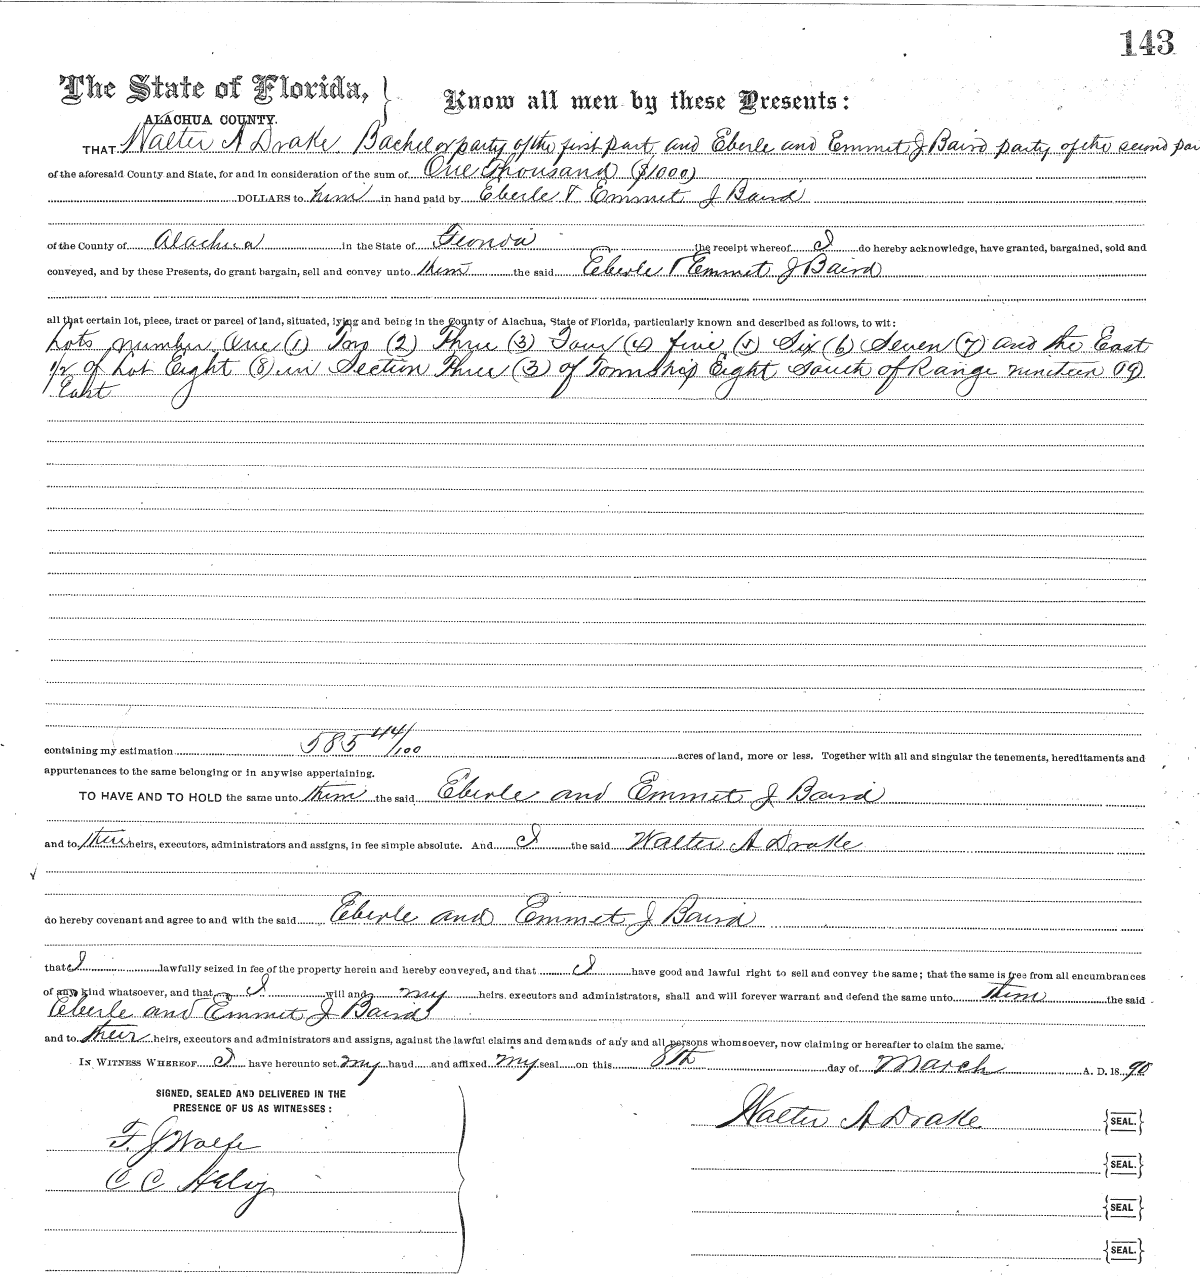 143
The State of Florida, } Know all men by these Presents:
ALACHUA COUNTY.
THAT Walter A Drake Bachelor party of the first part and Eberle and Emmet J Baird party of the second par
of the aforesaid County and State, for and in consideration of the sum of One thousand ($1000)
DOLLARS to him in hand paid by Eberle & Emmet J Baird
of the County of Alachua in the State of Florida the receipt whereof I do hereby acknowledge, have granted, bargained, sold and
conveyed, and by these Presents, do grant bargain, sell and convey unto them the said Eberle & Emmet J Baird
all that certain lot, piece, tract or parcel of land, situated, lying and being in the County of Alachua, State of Florida, particularly known and described as follows, to wit:
Lots number One (1) Two (2) Three (3) Four (4) five (5) Six (6) Seven (7) and the East
1/2 of Lot Eight (8) in Section Three (3) of Township Eight South of Range nineteen (19)
East
containing my estimation 585 44/100 acres of land, more or less. Together with all and singular the tenements, hereditaments and
appurtenances to the same belonging or in anywise appertaining.
TO HAVE AND TO HOLD the same unto them the said Eberle and Emmet J Baird
and to their heirs, executors, administrators and assigns, in fee simple absolute. And I the said Walter A Drake
do hereby covenant and agree to and with the said Eberle and Emmet J Baird
that I lawfully seized in fee of the property herein and hereby conveyed, and that I have good and lawful right to sell and convey the same; that the same is free from all encumbrances
of any kind whatsoever, and that I will and my heirs. executors and administrators, shall and will forever warrant and defend the same unto them the said
Eberle and Emmet J Baird
and to their heirs, executors and administrators and assigns, against the lawful claims and demands of any and all persons whomsoever, now claiming or hereafter to claim the same.
IN WITNESS WHEREOF I have hereunto set my hand and affixed my seal on this 8th day of March A. D. 18 90
SIGNED, SEALED AND DELIVERED IN THE
PRESENCE OF US AS WITNESSES:
Walter A Drake {SEAL.}
F. J Wolfe
{SEAL.}
C C
{SEAL}
{SEAL.}